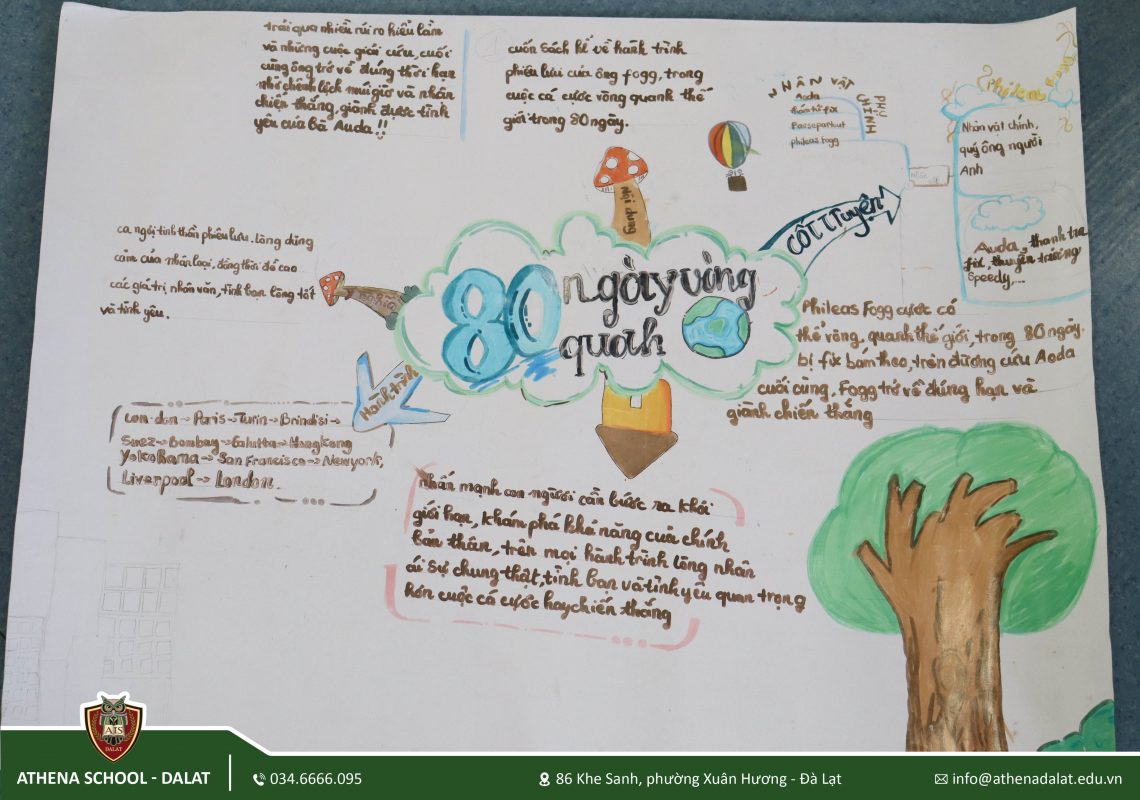 trải qua nhiều rủi ro hiểu lầm
và những cuộc giải cứu, cuối
cùng ông trở về đúng thời hạn
nhờ chênh lệch múi giờ và nhân
chiến thắng, giành được tình
yêu của bà Auda!!
cuốn sách kể về hành trình
phiêu lưu của ông fogg, trong
cuộc cá cược vòng quanh thế
giới trong 80 ngày.
NHÂN VẬT
CHÍNH
PHỤ
Aoda
fix
Passepartout
phileas fogg
Phileas
Fogg
Nhân vật chính,
quý ông người
Anh
Auda, thanh tra
fix, thuyền trưởng
Speedy,...
Nội dung
CỐT TRuyện
ca ngợi tinh thần phiêu lưu. lòng dũng
cảm của nhân loại, đồng thời đề cao
các giá trị nhân văn, tình bạn lòng tốt
và tình yêu.
80 ngày vòng
quanh
Phileas Fogg cược có
thể vòng, quanh thế giới, trong 80 ngày.
bị fix bám theo, trên đường cứu Aoda
cuối cùng, Fogg trở về đúng hạn và
giành chiến thắng
Hành trình
Lon-don → Paris → Turin → Brindisi →
Suez → Bombay → Calutta → Hongkong
Yokohama → San Francisco → Newyork,
Liverpool → London.
nhấn mạnh con người cần bước ra khỏi
giới hạn, khám phá khả năng của chính
bản thân, trên mọi hành trình lòng nhân
ái sự chung thật, tình bạn và tình yêu quan trọng
hơn cuộc cá cược hay chiến thắng
AIS
DALAT
ATHENA SCHOOL - DALAT
034.6666.095
86 Khe Sanh, phường Xuân Hương - Đà Lạt
info@athenadalat.edu.vn